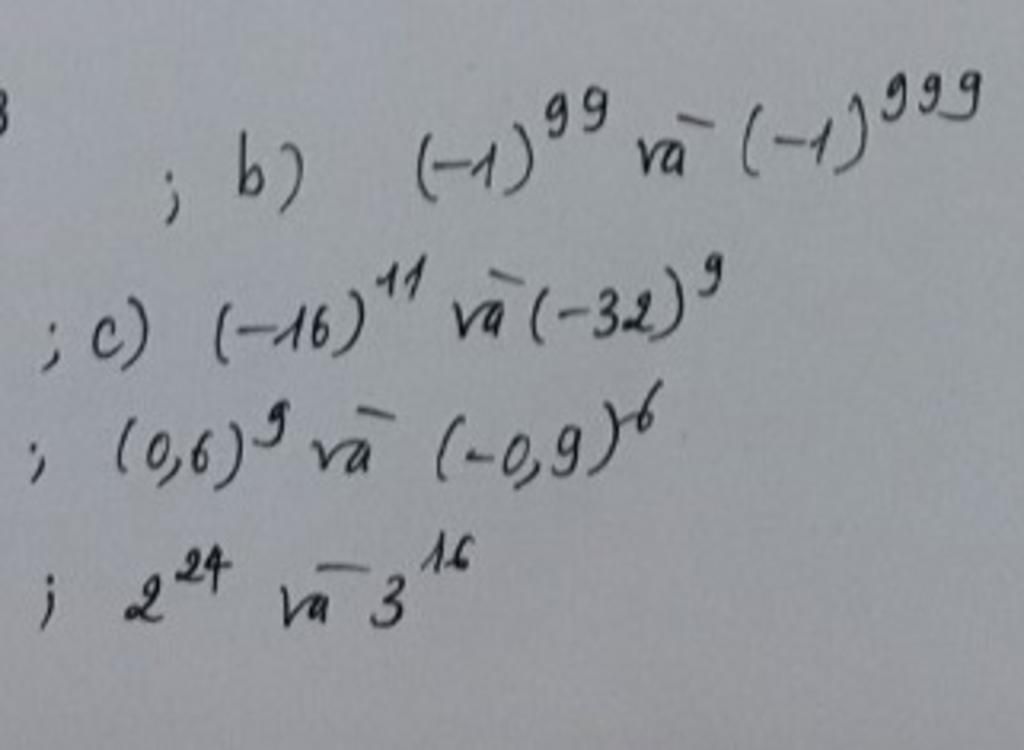 ; b) (-1)^99 và (-1)^999
; c) (-16)^11 và (-32)^9
; (0,6)^9 và (-0,9)^6
; 2^24 và 3^16